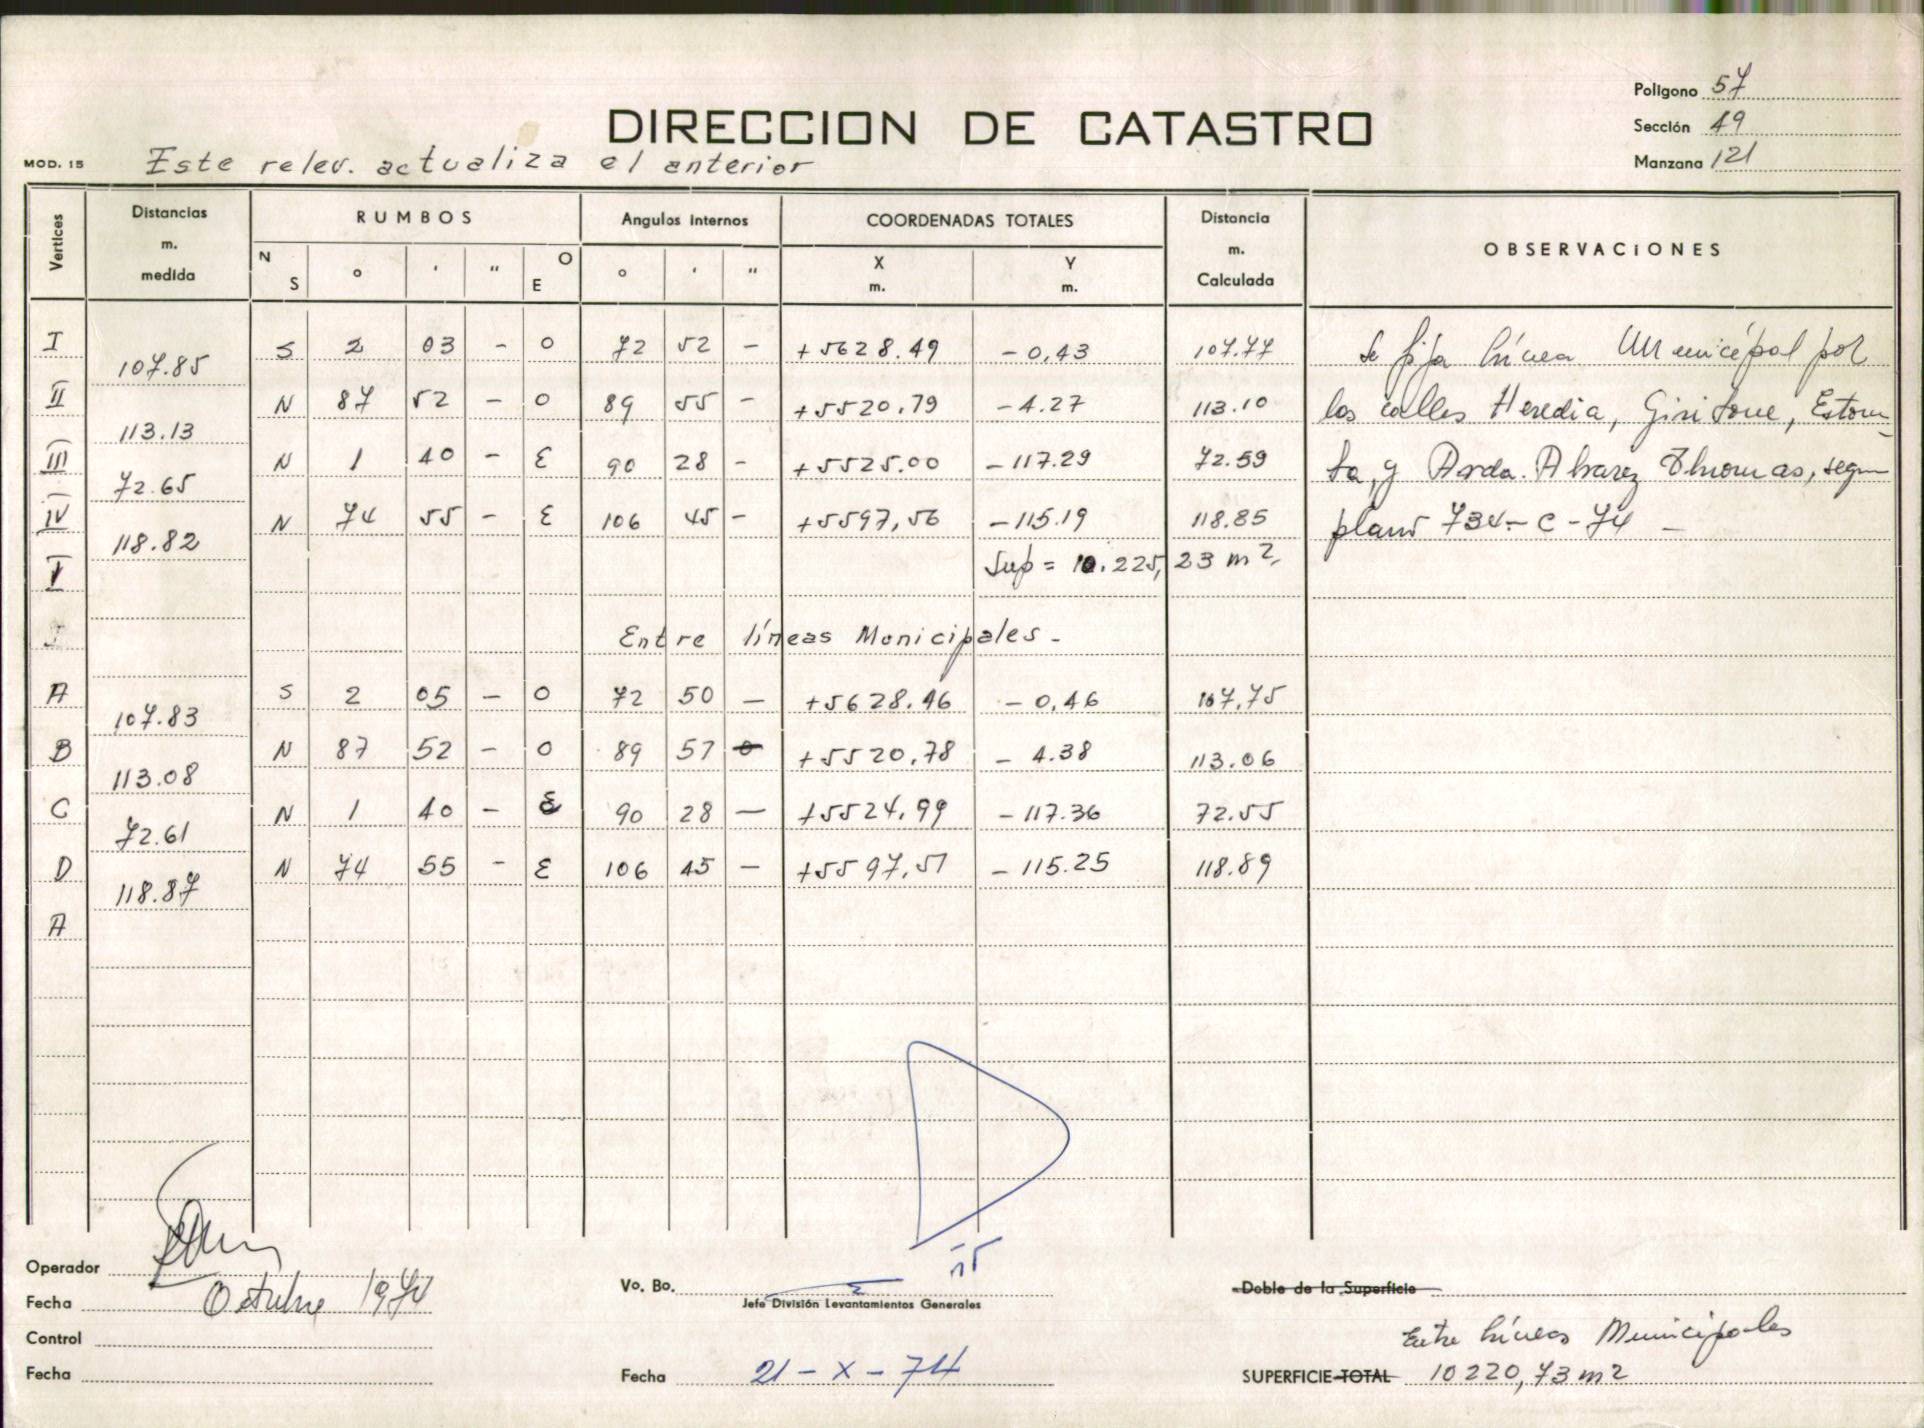 Poligono 57
DIRECCION DE CATASTRO
Sección 49
MOD. 15 Este relev. actualiza el anterior
Manzana 121
Vertices Distancias m. medida RUMBOS Angulos internos COORDENADAS TOTALES Distancia m. Calculada OBSERVACIONES
N S o ' " O E o ' " X m. Y m.
I S 2 03 - O 72 52 - +5628.49 -0,43 107.77 Se fija Línea Municipal por
107.85
II N 87 52 - O 89 55 - +5520,79 -4.27 113.10 las calles Heredia, Giribone, Estom-
113.13
III N 1 40 - E 90 28 - +5525.00 -117.29 72.59 ba, y Avda. Alvarez Thomas, segun
72.65
IV N 74 55 - E 106 45 - +5597,56 -115.19 118.85 plano 734-C-74 -
118.82
I Sup = 10.225,23 m2.
Entre líneas Municipales.-
A S 2 05 - O 72 50 - +5628.46 -0,46 107,75
107.83
B N 87 52 - O 89 57 +5520,78 -4.38 113.06
113.08
C N 1 40 - E 90 28 - +5524,99 -117.36 72.55
72.61
D N 74 55 - E 106 45 - +5597,51 -115.25 118.89
118.87
A
Operador
Vo. Bo.
Doble de la Superficie
Fecha Octubre 1974
Jefe División Levantamientos Generales
Control
Entre Líneas Municipales
Fecha
Fecha 21-X-74
SUPERFICIE TOTAL 10220,73 m2